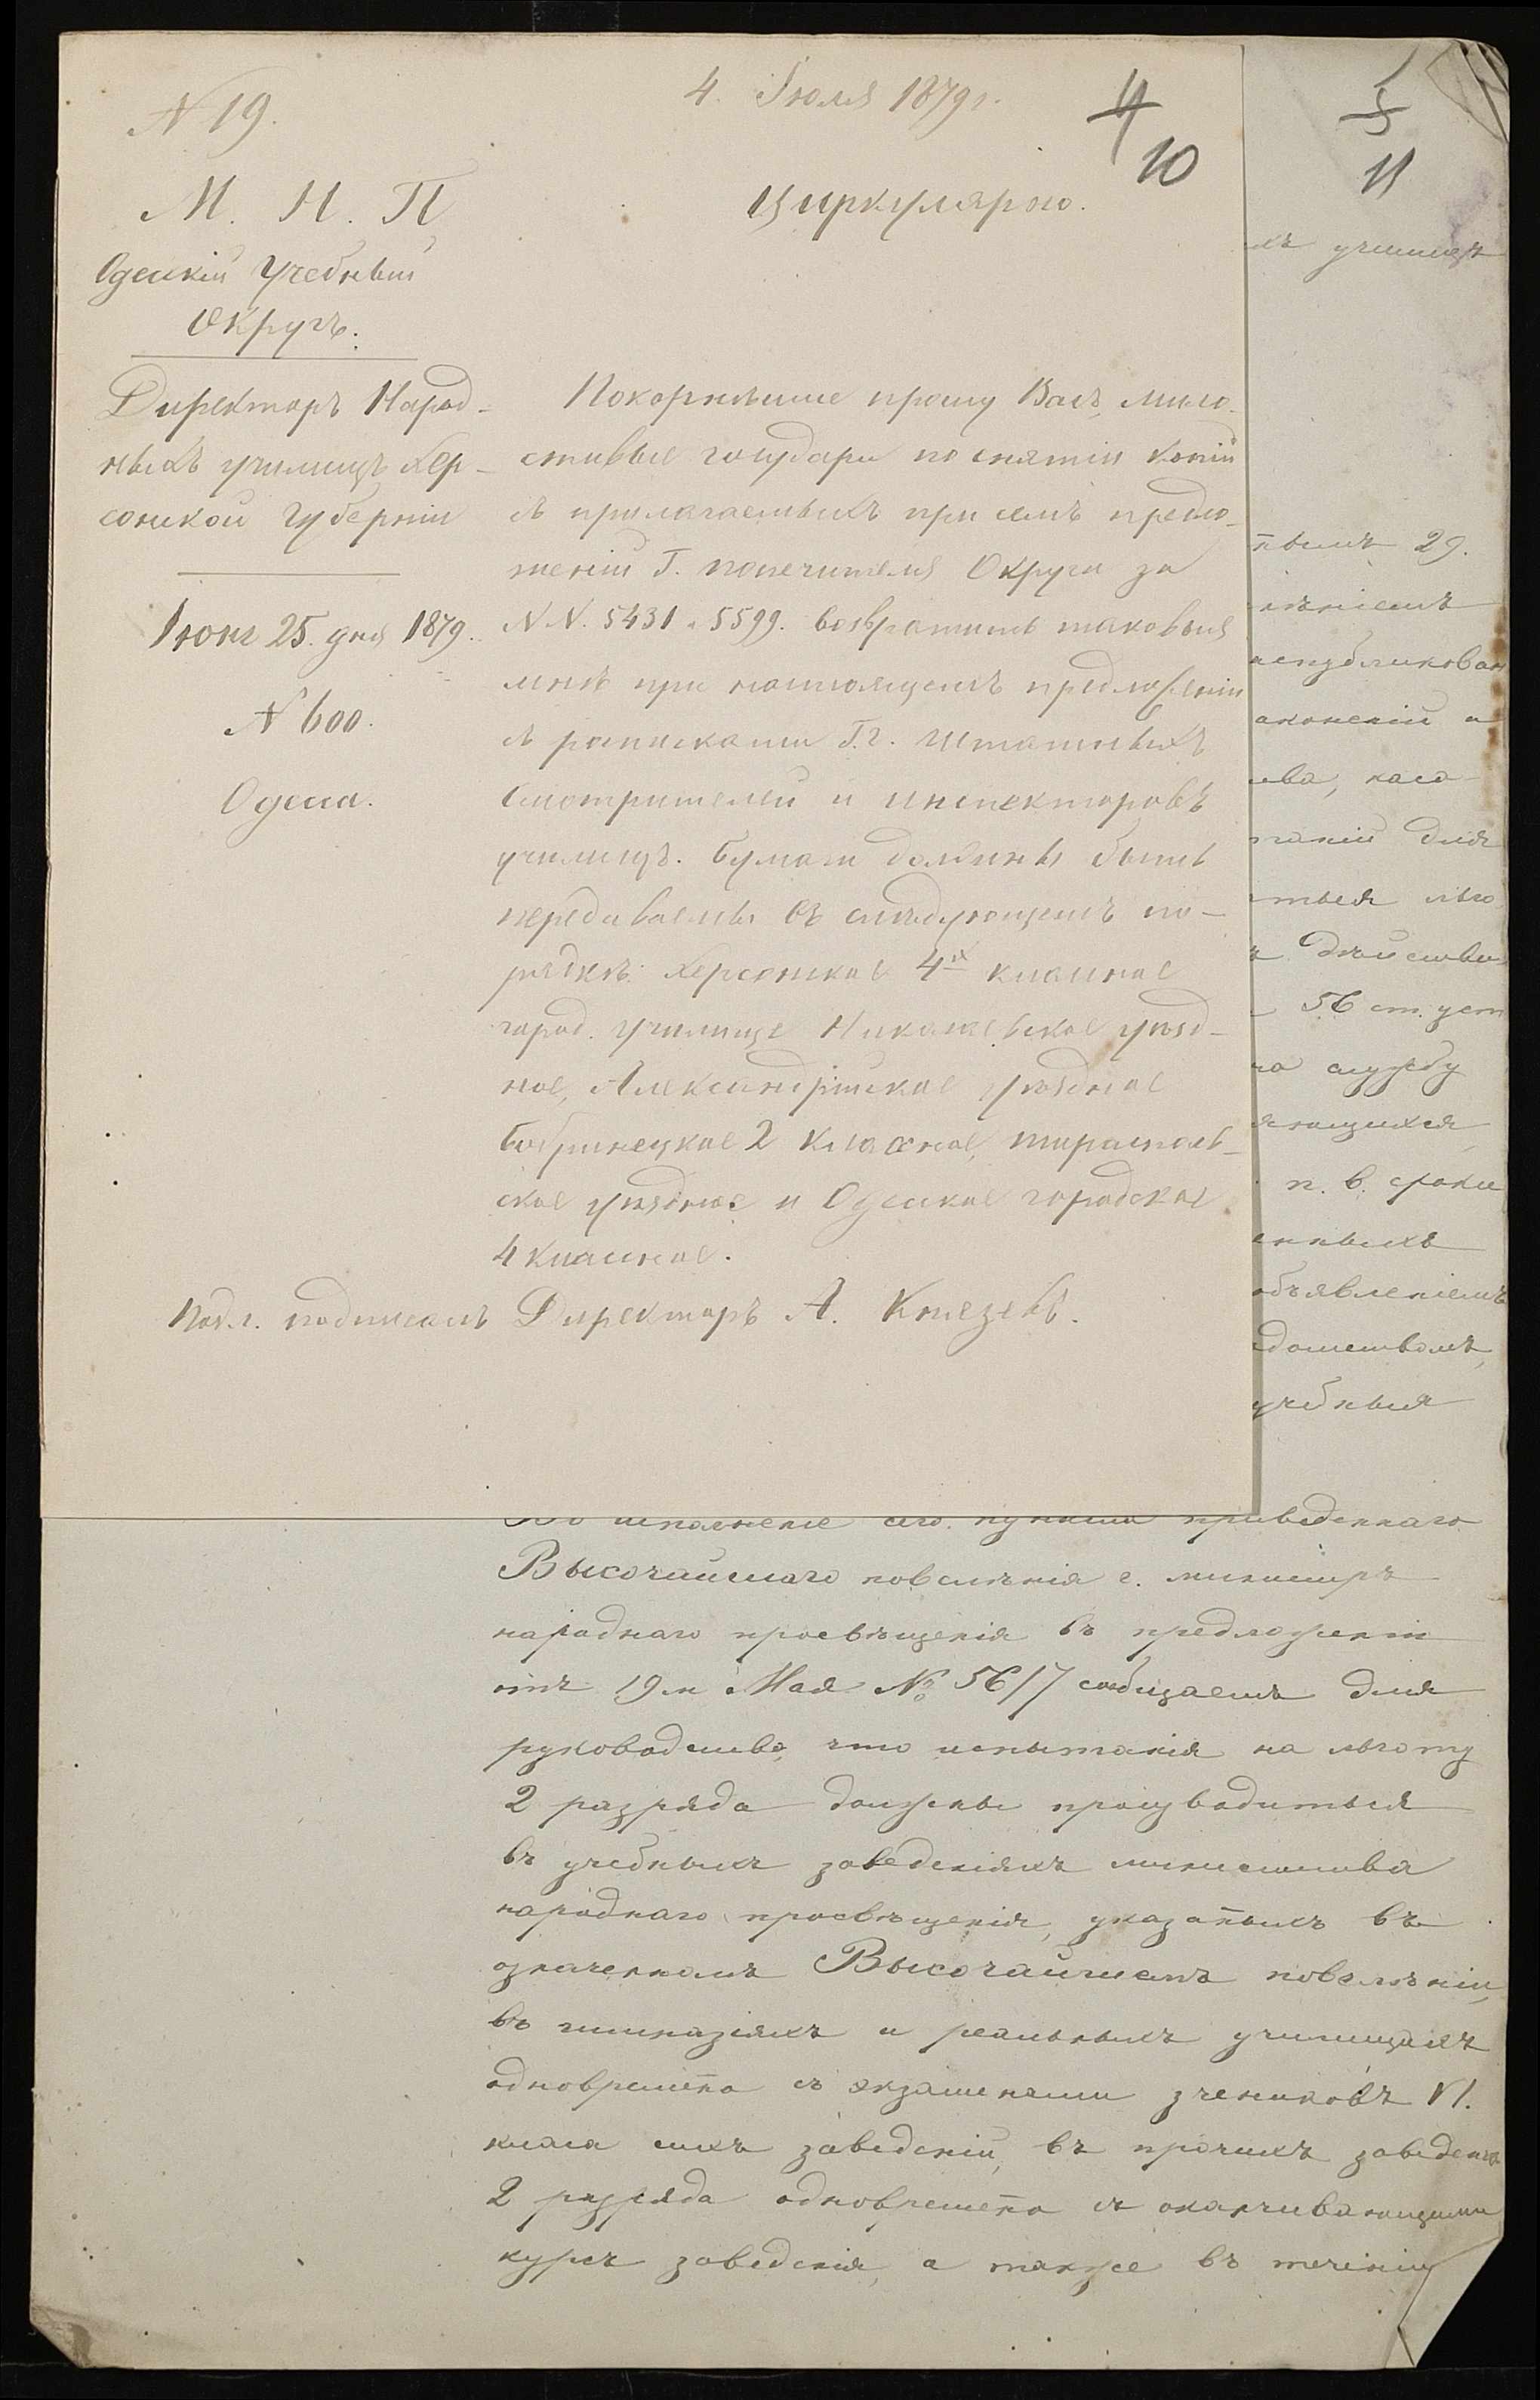 N 19.
4. Июля 1879 г.
4
10
М. Н. П
Одескій Учебный
Округъ.
Директоръ Народ-
ныхъ училищъ Хер-
сонской Губерніи
Іюня 25. дня 1879.
N 600.
Одесса.
Циркулярно.
Покорнѣише прошу Васъ, мило-
стивые государи по снятіи копій
съ прилагаемыхъ при семъ предло-
женій Г. попечителя Округа за
N N. 5431 и 5599. возвратить таковыя
мнѣ при настоящемъ предложеніи
съ росписками Г.г. Штатныхъ
Смотрителей и инспекторовъ
училищъ. Бумаги должны быть
передаваемы въ слѣдующемъ по-
рядкѣ: Херсонское 4х классное
город. училище Николаевское уѣзд-
ное, Александрійское уѣздное
Бобринецкое 2 классное, Тирасполь-
ское уѣздное и Одесское городское
4 классное.
Подл. подписалъ Директоръ А. Князевъ.
5
11
хъ училищъ
нымъ 29.
аспубликован
аконеній и
ства, каса
таній для
ться льго
ъ дѣйстви
56 ст. уст
на службу
яющихся
п. в. сроки
енныхъ
объявленіемъ
домствомъ,
учебныя
Во исполненіе сего пункта приведеннаго
Высочайшаго повелѣнія г. министръ
народнаго просвѣщенія въ предложеніи
отъ 19 м Мая № 5617 сообщаетъ для
руководства, что испытанія на льготу
2 разряда должны производиться
въ учебныхъ заведеніяхъ министества
народнаго просвѣщенія, указаныхъ въ
означенномъ Высочайшемъ повелѣніи,
въ гимназіяхъ и реальныхъ училищахъ
одновремено съ экзаменами учениковъ VI.
класа сихъ заведеній, въ прочихъ заведенія
2 разряда одновремено съ оканчивающими
курсъ заведенія, а также въ теченіи